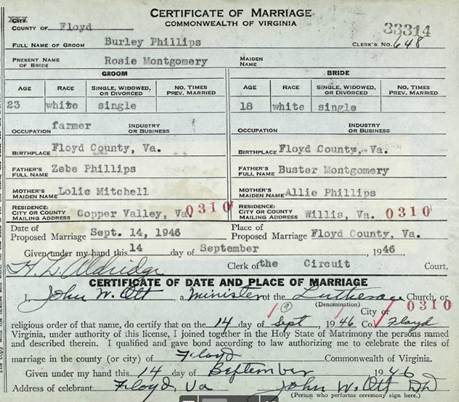 CERTIFICATE OF MARRIAGE
COMMONWEALTH OF VIRGINIA
33314
COUNTY OF Floyd
CLERK'S No. 648
FULL NAME OF GROOM Burley Phillips
PRESENT NAME OF BRIDE Rosie Montgomery MAIDEN NAME
GROOM BRIDE
AGE RACE SINGLE, WIDOWED, OR DIVORCED NO. TIMES PREV. MARRIED AGE RACE SINGLE, WIDOWED, OR DIVORCED NO. TIMES PREV. MARRIED
23 white single 18 white single
OCCUPATION farmer INDUSTRY OR BUSINESS OCCUPATION INDUSTRY OR BUSINESS
BIRTHPLACE Floyd County, Va. BIRTHPLACE Floyd County, Va.
FATHER'S FULL NAME Zebe Phillips FATHER'S FULL NAME Buster Montgomery
MOTHER'S MAIDEN NAME Lolie Mitchell MOTHER'S MAIDEN NAME Allie Phillips
RESIDENCE: CITY OR COUNTY MAILING ADDRESS Copper Valley, Va. 0310 RESIDENCE: CITY OR COUNTY MAILING ADDRESS Willis, Va. 0310
Date of Proposed Marriage Sept. 14, 1946 Place of Proposed Marriage Floyd County, Va.
Given under my hand this 14 day of September 1946
Clerk of the Circuit Court.
CERTIFICATE OF DATE AND PLACE OF MARRIAGE
I, John W. Ott a Minister of the Lutheran Church, or
(Denomination) City or 0310
religious order of that name, do certify that on the 14 day of Sept 1946 Co Floyd
Virginia, under authority of this license, I joined together in the Holy State of Matrimony the persons named
and described therein. I qualified and gave bond according to law authorizing me to celebrate the rites
of marriage in the county (or city) of Floyd Commonwealth of Virginia.
Given under my hand this 14 day of September 1946
Address of celebrant Floyd Va John W. Ott
(Person who performs ceremony sign here.)